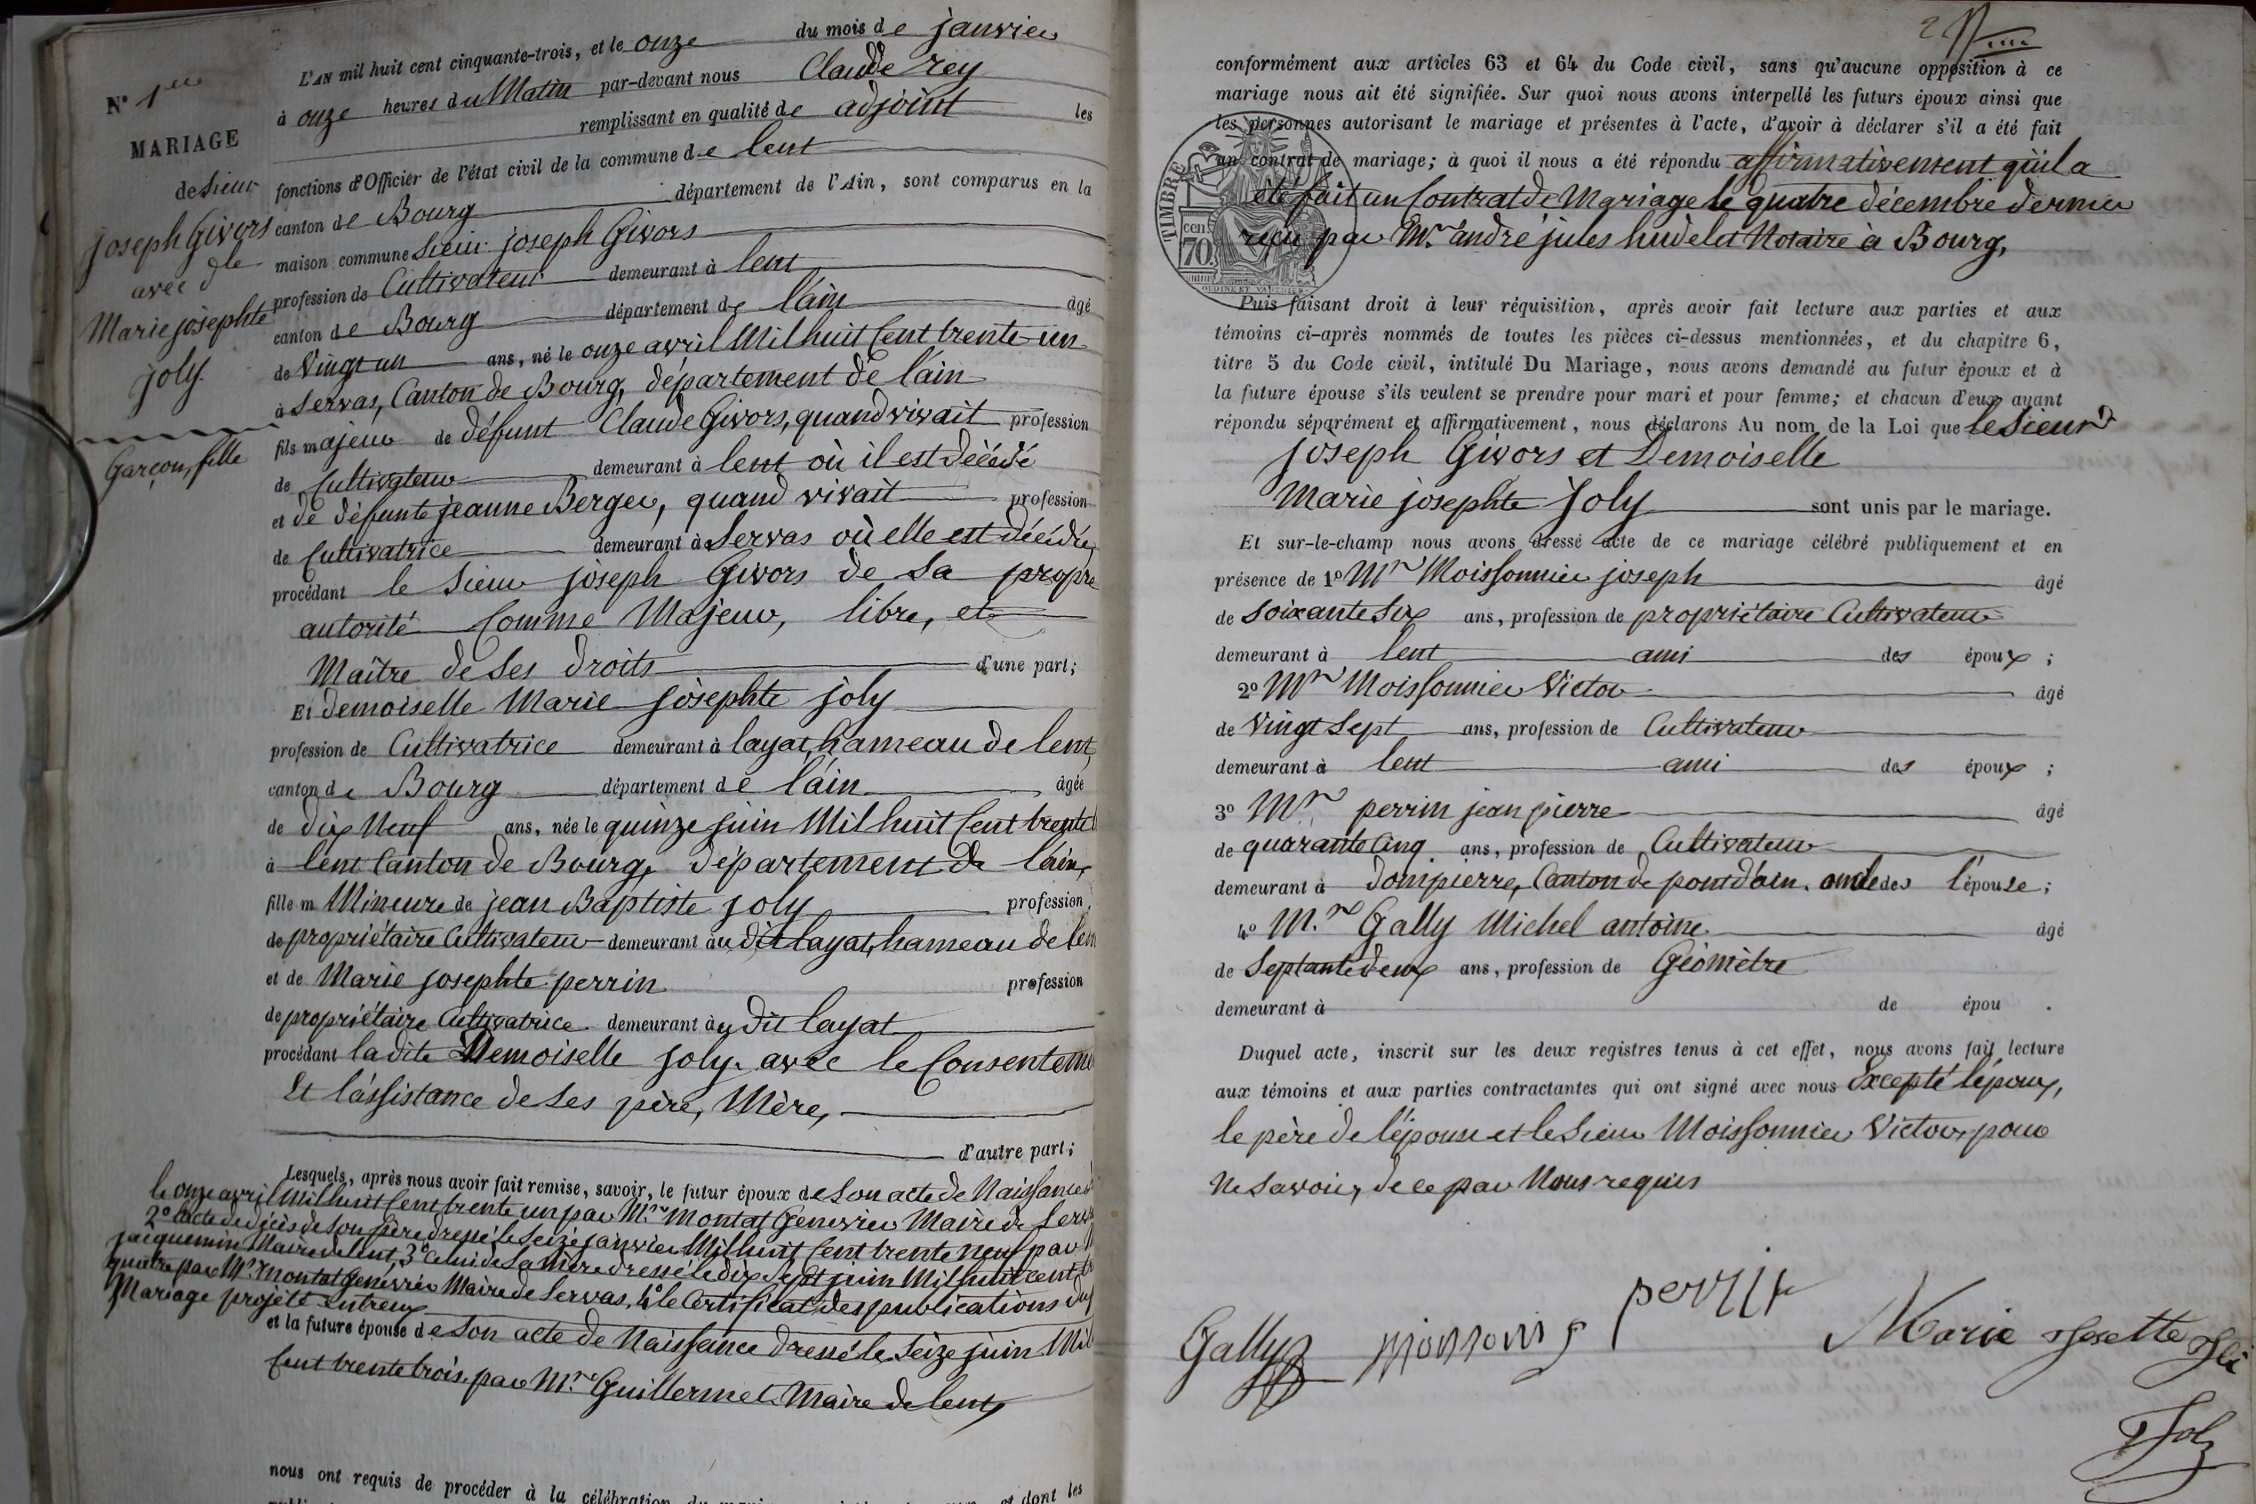 L'AN mil huit cent cinquante-trois, et le onze du mois de janvier
à onze heures du Matin par-devant nous Claude rey
remplissant en qualité de adjoint les
fonctions d'Officier de l'état civil de la commune de lent
canton de Bourg département de l'Ain, sont comparus en la
maison commune Sieur joseph Givors
profession de Cultivateur demeurant à lent
canton de Bourg département de l'ain âgé
de Vingt un ans, né le onze avril Mil huit Cent trente un
à Servas, Canton de Bourg, département de l'ain
fils majeur de défunt Claude Givors, quand vivait profession
de Cultivateur demeurant à lent où il est décédé
et de défunte jeanne Berger, quand vivait profession
de Cultivatrice demeurant à Servas où elle est décédée
procédant le Sieur joseph Givors de Sa propre
autorité Comme Majeur, libre, et
Maître de Ses droits d'une part;
Et demoiselle Marie josephte joly
profession de Cultivatrice demeurant à layat, hameau de lent
canton de Bourg département de l'ain âgée
de dix Neuf ans, née le quinze juin Mil huit Cent trente
à lent Canton de Bourg, département de l'ain,
fille m Mineure de jean Baptiste joly profession
de propriétaire Cultivateur demeurant au dit layat, hameau de
et de Marie josephte perrin profession
de propriétaire Cultivatrice demeurant au dit layat
procédant la dite Demoiselle joly, avec le
Et l'assistance de Ses père, Mère,
d'autre part;
Lesquels, après nous avoir fait remise, savoir, le futur époux de Son acte de Naissance
le onze avril Mil huit Cent trente un par Mr. Montat Genevrier Maire de
2º acte de décès de Son père dressé le Seize janvier Mil huit Cent trente neuf par
jacquemin Maire de lent, 3º Celui de Sa mère dressé le dix Sept juin Mil huit cent
quatre par Mr. Montat Genevrier Maire de Servas, 4º le Certificat des publications du
Mariage projeté entreux
et la future épouse de Son acte de Naissance dressé le Seize juin Mil
Cent trente trois par Mr. Guillermet Maire de lent,
nous ont requis de procéder à la célébration et dont les
N° 1er
MARIAGE
de Sieur
joseph Givors
avec dlle
Marie josephte
joly.
Garçon, fille
conformément aux articles 63 et 64 du Code civil, sans qu'aucune opposition à ce
mariage nous ait été signifiée. Sur quoi nous avons interpellé les futurs époux ainsi que
les personnes autorisant le mariage et présentes à l'acte, d'avoir à déclarer s'il a été fait
un contrat de mariage; à quoi il nous a été répondu affirmativement qu'il a
été fait un Contrat de Mariage le quatre décembre dernier
reçu par Mr. andré jules hudelet Notaire à Bourg,
TIMBRE
cen
70
Puis faisant droit à leur réquisition, après avoir fait lecture aux parties et aux
témoins ci-après nommés de toutes les pièces ci-dessus mentionnées, et du chapitre 6,
titre 5 du Code civil, intitulé Du Mariage, nous avons demandé au futur époux et à
la future épouse s'ils veulent se prendre pour mari et pour femme; et chacun d'eux ayant
répondu séparément et affirmativement, nous déclarons Au nom de la Loi que le Sieur
joseph Givors et Demoiselle
Marie josephte joly sont unis par le mariage.
Et sur-le-champ nous avons dressé acte de ce mariage célébré publiquement et en
présence de 1º Mr Moissonnier joseph âgé
de Soixante Six ans, profession de propriétaire Cultivateur
demeurant à lent ami des époux ;
2º Mr Moissonnier Victor âgé
de Vingt Sept ans, profession de Cultivateur
demeurant à lent ami des époux ;
3º Mr perrin jean pierre âgé
de quarante Cinq ans, profession de Cultivateur
demeurant à dompierre, Canton de pont d'ain. oncle des l'épouse ;
4º Mr. Gally Michel antoine. âgé
de Septante deux ans, profession de Géomètre
demeurant à de épou .
Duquel acte, inscrit sur les deux registres tenus à cet effet, nous avons fait lecture
aux témoins et aux parties contractantes qui ont signé avec nous Excepté l'époux,
le père de l'épouse et le Sieur Moissonnier Victor, pour
Ne Savoir, de ce par Nous requis
Gally perrin Marie Josette
Joly